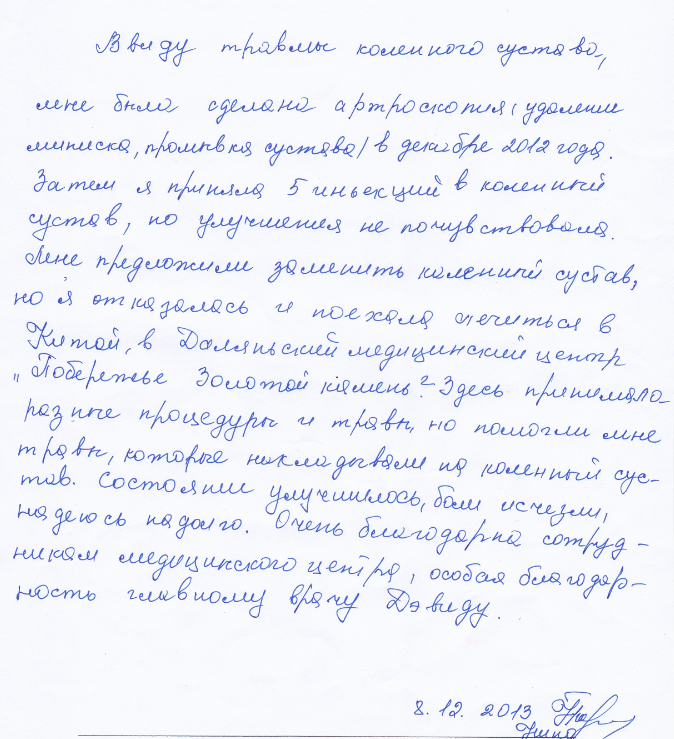 Ввиду травмы коленного сустава,
мне была сделана артроскопия (удаление
миниска, промывка сустава) в декабре 2012 года.
Затем я приняла 5 иньекций в коленный
сустав, но улучшения не почувствовала.
Мне предложили заменить коленный сустав,
но я отказалась и поехала лечиться в
Китай, в Даляньский медицинский центр
„Побережье Золотой камень". Здесь принимала
разные процедуры и травы, но помогли мне
травы, которые накладывали на коленный сус-
тав. Состояние улучшилось, боли исчезли,
надеюсь надолго. Очень благодарна сотруд-
никам медицинского центра, особая благодар-
ность главному врачу Дэвиду.
8.12.2013
Нина